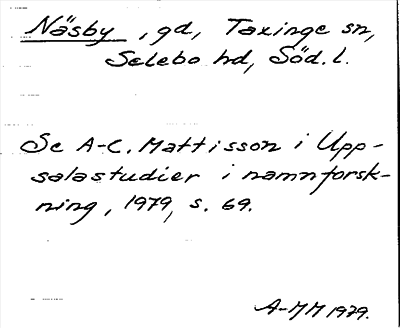 Näsby, gd, Taxinge sn,
Selebo hd, Söd. l.
Se A-C. Mattisson i Upp-
salastudier i namnforsk-
ning, 1979, s. 69.
A-MM 1979.